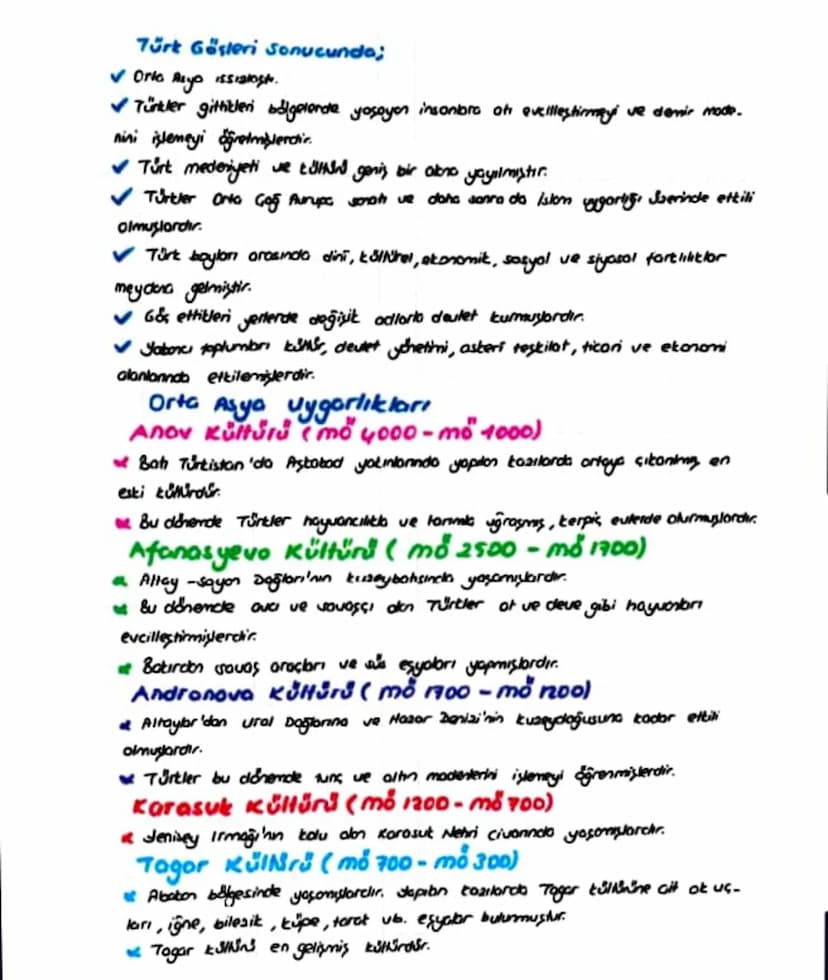 Türk Göçleri Sonucunda;
✓ Orta Asya ıssızlaştı.
✓ Türkler gittikleri bölgelerde yaşayan insanlara atı evcilleştirmeyi ve demir made-
nini işlemeyi öğretmişlerdir.
✓ Türk medeniyeti ve kültürü geniş bir alana yayılmıştır.
✓ Türkler Orta Çağ Avrupa sanatı ve daha sonra da İslam uygarlığı üzerinde etkili
olmuşlardır.
✓ Türk boyları arasında dinî, kültürel, ekonomik, sosyal ve siyasal farklılıklar
meydana gelmiştir.
✓ Göç ettikleri yerlerde değişik adlarla devlet kurmuşlardır.
✓ Yabancı toplumları kültür, devlet yönetimi, askerî teşkilat, ticari ve ekonomi
alanlarında etkilemişlerdir.
Orta Asya Uygarlıkları
Anav Kültürü (MÖ 4000 - MÖ 1000)
Batı Türkistan'da Aşkabad yakınlarında yapılan kazılarda ortaya çıkarılmış en
eski kültürdür.
Bu dönemde Türkler hayvancılıkla ve tarımla uğraşmış, kerpiç evlerde oturmuşlardır.
Afanasyevo Kültürü (MÖ 2500 - MÖ 1700)
Altay - Sayan Dağları'nın kuzeybatısında yaşamışlardır.
Bu dönemde avcı ve savaşçı olan Türkler at ve deve gibi hayvanları
evcilleştirmişlerdir.
Bakırdan savaş araçları ve süs eşyaları yapmışlardır.
Andronova Kültürü (MÖ 1700 - MÖ 1200)
Altaylar'dan Ural Dağlarına ve Hazar Denizi'nin kuzeydoğusuna kadar etkili
olmuşlardır.
Türkler bu dönemde tunç ve altın madenlerini işlemeyi öğrenmişlerdir.
Karasuk Kültürü (MÖ 1200 - MÖ 700)
Yenisey Irmağı'nın kolu olan Karasuk Nehri civarında yaşamışlardır.
Tagar Kültürü (MÖ 700 - MÖ 300)
Abakan bölgesinde yaşamışlardır. Yapılan kazılarda Tagar kültürüne ait ok uç-
ları, iğne, bilezik, küpe, tarak vb. eşyalar bulunmuştur.
Tagar kültürü en gelişmiş kültürdür.